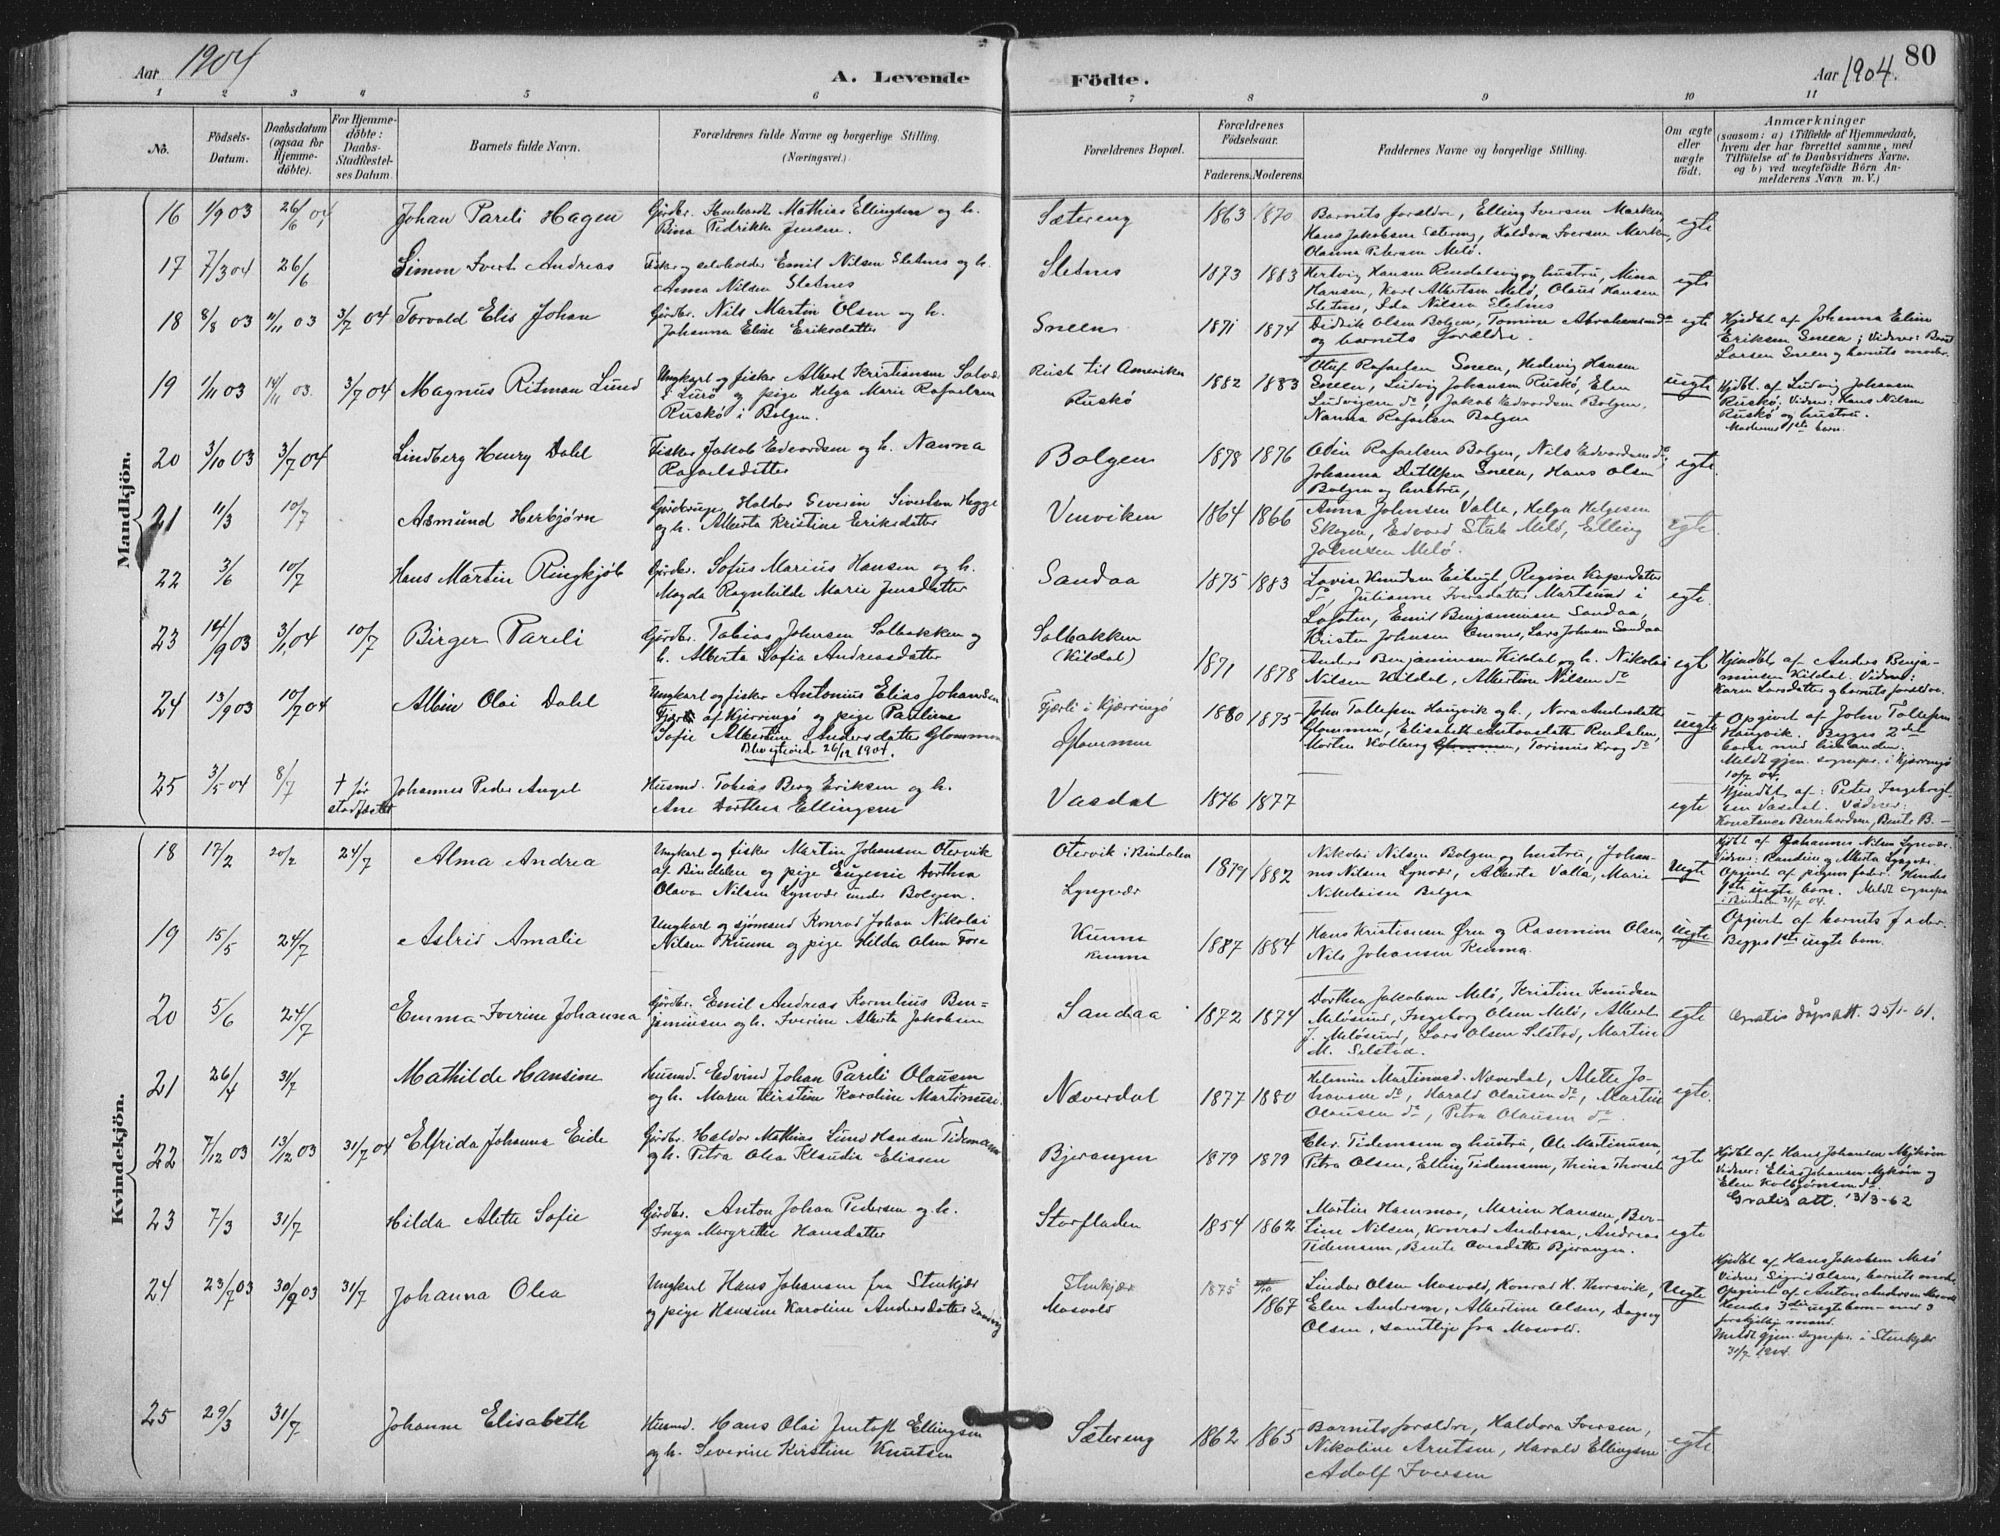 80
Aar 1904
A. Levende Födte.
Aar 1904.
1 2 3 4 5 6 7 8 9 10 11
No.
Födsels-Datum.
Daabsdatum (ogsaa for Hjemme-döbte).
For Hjemme-döbte: Daabs-Stadfæstel-ses Datum.
Barnets fulde Navn.
Forældrenes fulde Navne og borgerlige Stilling. (Næringsvei.)
Forældrenes Bopæl.
Forældrenes Födselsaar.
Faderens. Moderens.
Faddernes Navne og borgerlige Stilling.
Om ægte eller uægte födt.
Anmærkninger
(saasom: a) i Tilfælde af Hjemmedaab, hvem der har forrettet samme, med Tilföielse af to Daabsvidners Navne, og b) ved uægtefödte Börn An-melderens Navn m. V.)
Mandkjön.
16 1/9 03 26/6 04 Johan Pareli Hagen
Mathias Ellingsen og h.
Sætereng 1863 1870
Barnets forældre, Elling Iversen
Hans Jakobsen Sætereng, Haldora Iversen
Olanna Petersen Melö. egte
17 7/3 04 26/6 Simon Ivert Andreas
Emil Nilsen Sletnes og h.
Anna Nilsen Sletnes
Sletnes 1873 1883
Hansen, Karl Albertsen Melö, Olaus Hansen
Sletnes, Ida Nilsen Sletnes egte
18 8/8 03 11/11 03 3/7 04 Torvald Elis Johan
Gårdbr. Nils Martin Olsen og h.
Johanna Elise Eriksdatter
Sneen 1871 1874
Didrik Olsen Bolgen, Tomine
og barnets forældre. egte
Hjdbt af Johanna Eline
Eriksen Sneen; Vidner:
Larsen Sneen og barnets moder.
19 1/11 03 14/11 03 3/7 04 Magnus Ritman Lund
Ungkarl og fisker Albert Kristiansen
i Lurö og pige Helga Marie Rafaelsen
Ruskö i Bolgen.
Reist til Ameriken
Ruskö 1882 1883
Oluf Rafaelsen Sneen, Hedevig Hansen
Sneen, Ludvig Johansen Ruskö, Elen
Ludvigsen do, Jakob Edvardsen Bolgen,
Nanna Rafaelsen Bolgen uegte
Hjdbt. af Ludvig Johansen
Ruskö. Vidner: Hans Nilsen
Ruskö og hustru.
Moderens 1ste barn.
20 3/10 03 3/7 04 Lindberg Henry Dahl
Fisker Jakob Edvardsen og h. Nanna
Rafaelsdatter
Bolgen 1878 1876
Odin Rafaelsen Bolgen, Nils Edvardsen do,
Johanna Detlefsen Sneen, Hans Olsen
Bolgen og hustru, egte.
21 11/3 10/7 Asmund Herbjørn
Haldor Severin Sivertsen
og h. Alberta Kristine Eriksdatter
Venviken 1864 1866
Anna Johnsen Valla, Helga Helgesen
Skogen, Edvard Melö, Elling
Johnsen Melö. egte.
22 3/6 10/7 Hans Martin Ringkjöb
Gårdbr. Sofus Marius Hansen og h.
Magda Ragnhilde Marie Jensdatter
Sandaa 1875 1883
Lovise Knudsen
do, Julianne Iversdatter Martsund i
Lofoten, Emil Benjaminsen Sandaa,
Kristen Johnsen, Lars Johnsen Sandaa egte.
23 14/9 03 3/1 04 10/7 Birger Pareli
Gårdbr. Tobias Johnsen Solbakken og
h. Alberta Sofia Andreasdatter
Solbakken
(Kildal) 1871 1878
Anders Benjaminsen Kildal og h. Nikolai
Nilsen Kildal, Albertine Nilsen do egte
Hjemdbt. af Anders Benja-
minsen Kildal. Vidner:
Karen Larsdatter og barnets forældre.
24 13/9 03 10/7 04 Albin Olai Dahl
Ungkarl og fisker Antonius Elias Johansen
af Kjerringö og pige Pauline
Sofie Albertine Andersdatter Glommen
26/12 1904.
Fjærli i Kjærringö
Glommen 1880 1875
John Tollefsen Haugvik og h., Nora Andersdatter
Glommen, Elisabeth Antonsdatter Rendalen,
Morten Kolberg, Torinus Krog do uegte
Opgivet af John Tollefsen
Haugvik. Begges 2det
barn med hinanden.
Meldt gjen. sognepr. i Kjærringö
10/7 04.
25 3/5 04 8/7 † før stadfestet
Johannes Peder Angel
Husmd. Tobias Berg Eriksen og h.
Ane Dorthea Ellingsen
Vasdal 1876 1877 egte
Hjemdbt. af: Peter
Vasdal. Vidner:
Konstanse Bernhardsen, Bente B. —
Kvindekjön.
18 17/2 20/2 24/7 Alma Andrea
Ungkarl og fisker Martin Johansen Otervik
af Bindalen og pige Eugenie Dorthea
Olava Nilsen Lyngvær under Bolgen.
Otervik i Bindalen
Lyngvær 1879 1882
Nikolai Nilsen Bolgen og hustru, Johan-
nes Nilsen Lynvær, Alberte Valla, Marie
Nikolaisen Bolgen uegte
Hjdbt af Johannes Nilsen Lyngvær.
Opgivet af pigens fader. Hendes
1ste uegte barn. Meldt sognepr
i Bindalen 31/7 04.
19 15/5 24/7 Astrid Amalie
Ungkarl og sjømand Konrad Johan Nikolai
Nilsen Kunna og pige Hilda Olsen Fore
Kunna
Kunna 1887 1884
Hans Kristiansen Øren og Rasmine Olsen,
Nils Johansen Kunna. uegte
Opgivet af barnets fader.
Begges 1ste uegte barn.
20 5/6 24/7 Emma Iverine Johanna
Gårdbr. Emil Andreas Kornelius Ben-
jaminsen og h. Iverine Alberta Jakobsen
Sandaa 1872 1874
Dorthea Jakobsen Melö, Kristine Knudsen
Melösund, Ingeborg Olsen Melö, Albert
J. Melösund, Lars Olsen Selstad, Martin
M. Selstad. egte
Gratis dåpsatt. 25/1-61.
21 26/4 31/7 Mathilde Hansine
Husmd. Edvind Johan Pareli Olausen
og h. Maren Kirstine Karoline
Næverdal 1877 1880
Helmine Næverdal, Alette Jo-
hansen do, Harald Olausen do, Martin
Olausen do, Petra Olausen do egte.
22 7/12 03 13/12 03 31/7 04 Elfrida Johanna Eide
Gårdbr. Haldor Mathias Lund Hansen Tidemann
og h. Petra Olea Klaudia Eliasen
Bjerangen 1879 1879
Chr. Tidemann og hustru, Ole Martinusen,
Petra Olsen, Elling Tidemann, Thina egte
Hjdbt af Hans Johansen
Vidner: Elias Johansen og
Elen Kolbjørnsen do.
Gratis att. 13/3-62
23 7/3 31/7 Hilda Alette Sofie
Gårdbr. Anton Johan Pedersen og h.
Inga Margrethe Hansdatter
Storfladen 1854 1862
Martin Hammar, Marien Hansen, Ber-
Nilsen, Konrad Andersen, Andreas
Tidemann, Bente Bjerangen. egte
24 23/7 03 30/9 03 31/7 Johanna Olea
Ungkarl Hans Johansen fra Stenkjær
og pige Hansine Karoline Andersdatter
Stenkjær
Mosvold 1875 1867
Lindor Olsen Mosvold, Konrad H. Thorsvik,
Elen Andersen, Albertine Olsen, Dagny
Olsen, samtlige fra Mosvold. uegte
Hjdbt af Hans Jakobsen
Vidner Sigrid Olsen, barnets moder.
Opgivet af Anton Andersen Mosvold
Hendes 3die uegte barn med 3
forskjellig mand.
Meldt gjen. sognepr. i Stenkjær
31/7 1904.
25 29/3 31/7 Johanne Elisabeth
Husmd. Hans Olai Jentoft Ellingsen
og h. Severine Kirstine Knutsen
Sætereng 1862 1865
Barnets forældre, Haldora Iversen,
Nikoline Arntsen, Harald Ellingsen
Adolf Iversen egte